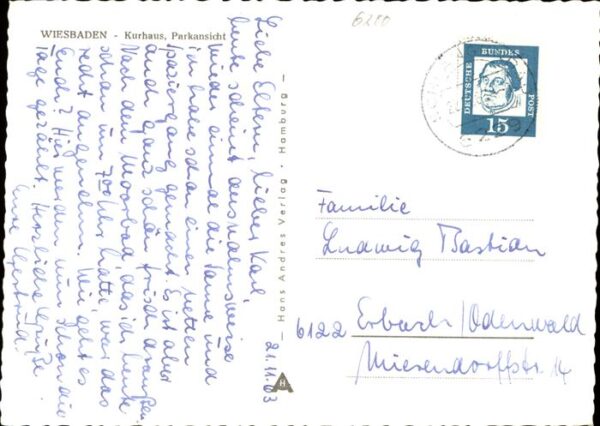 WIESBADEN - Kurhaus, Parkansicht
6200
21.11.63
Liebe Eltern, lieber Karl,
heute scheint ausnahmsweise
wieder einmal die Sonne und
ich habe schon einen netten
Spaziergang gemacht. Es ist aber
auch ganz schön frisch draußen.
Nach dem Moorbad, das ich heute
schon um 7 00 Uhr hatte, war das
recht angenehm. Wie geht es
Euch? Hier werden nun schon die
Tage gezählt. Herzliche Grüße
Eure Gertrud.
— Hans Andres Verlag · Hamburg —
DEUTSCHE BUNDES POST
15
Familie
Ludwig Bastian
6122 Erbach/Odenwald
Mierendorffstr. 14